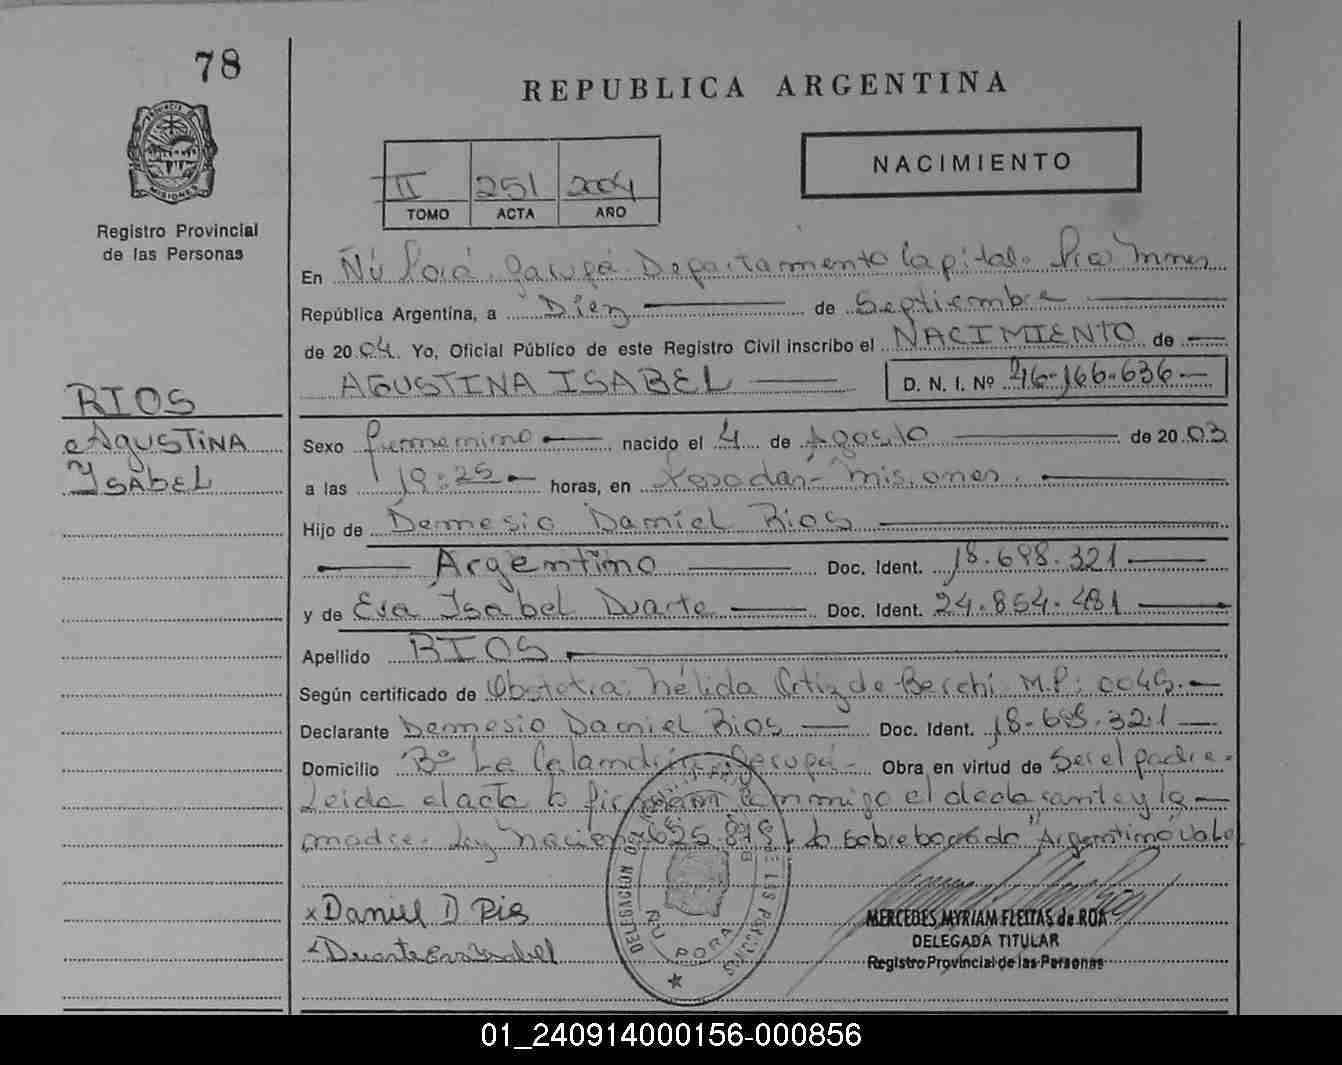 78
REPUBLICA ARGENTINA
PROVINCIA DE
MISIONES
Registro Provincial
de las Personas
II 251 2004
TOMO ACTA AÑO
NACIMIENTO
En Ñú Porá. Garupá. Departamento Capital. Pcia Mnes
República Argentina, a Diez de Septiembre
de 2004. Yo, Oficial Público de este Registro Civil inscribo el NACIMIENTO de
AGUSTINA ISABEL D. N. I. Nº 46-166-636
RIOS
AGUSTINA
YSABEL
Sexo femenino nacido el 4 de Agosto de 2003
a las 19:25 horas, en Posadas - Misiones.
Hijo de Demesio Daniel Rios
Argentino Doc. Ident. 18.688.321
y de Eva Isabel Duarte Doc. Ident. 24.854.481
Apellido RIOS
Según certificado de Obstetra: Nélida Ortiz de Berchi M.P: 0045.
Declarante Demesio Daniel Rios Doc. Ident. 18.688.321
Domicilio Bº La Calandria Garupá - Obra en virtud de Ser el padre.
Leida el acta la firman conmigo el declarante y la
madre. Ley Nacional 625.818 Lo sobreborrado "Argentino" Vale
DELEGACION DEL REGISTRO PROVINCIAL DE LAS PERSONAS
ÑU PORA
x Daniel D Rios
x Duarte Eva Isabel
MERCEDES MYRIAM FLEITAS de ROA
DELEGADA TITULAR
Registro Provincial de las Personas
01_240914000156-000856